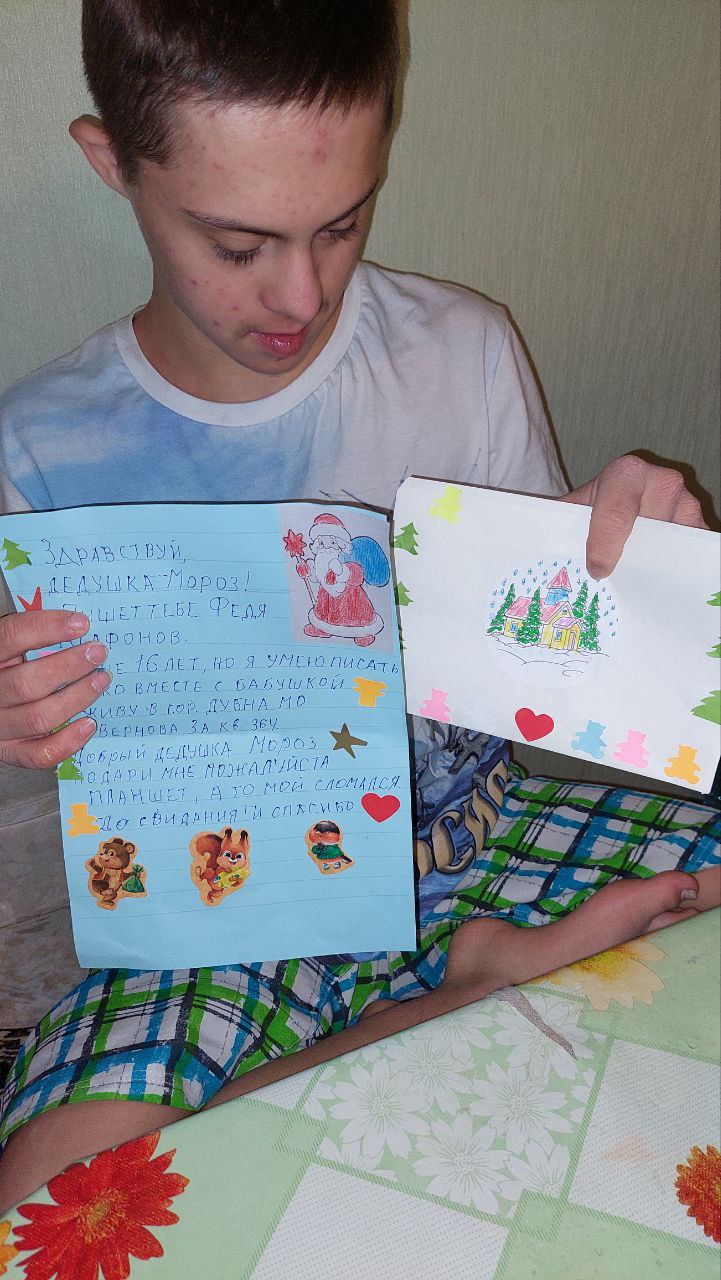 ЗДРАВСТВУЙ,
ДЕДУШКА-МОРОЗ!
ПИШЕТ ТЕБЕ ФЕДЯ
16 ЛЕТ, НО Я УМЕЮ ПИСАТЬ
ВМЕСТЕ С БАБУШКОЙ
ЖИВУ В ГОР. ДУБНА МО
ДОБРЫЙ ДЕДУШКА МОРОЗ
ПОДАРИ МНЕ ПОЖАЛУЙСТА
ПЛАНШЕТ, А ТО МОЙ СЛОМАЛСЯ.
ДО СВИДАНИЯ! И СПАСИБО